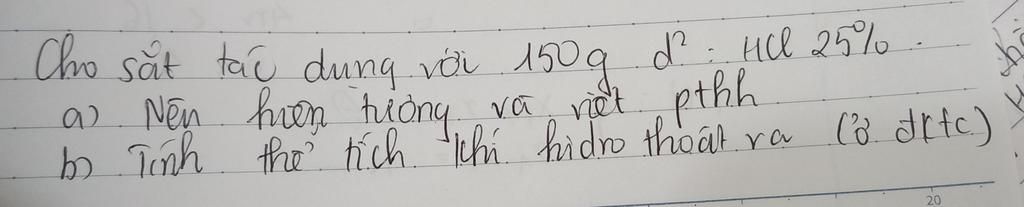 Cho sắt tác dụng với 150g d²: HCl 25%.
a) Nên hiện tượng và viết pthh
b) Tính thể tích khí hidro thoát ra (ở đktc)
20